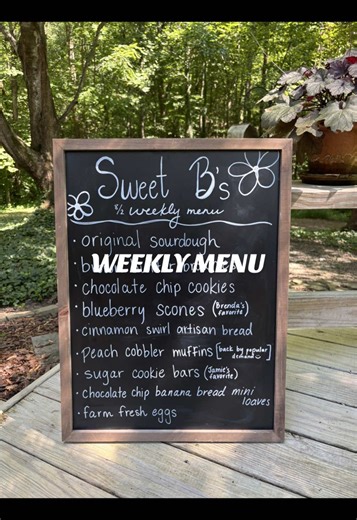 Sweet B's
8/2 weekly menu
• original sourdough
WEEKLY MENU
• chocolate chip cookies
• blueberry scones (Brenda's favorite)
• cinnamon swirl artisan bread
• peach cobbler muffins [back by popular demand☺]
• sugar cookie bars (Jamie's favorite)
• chocolate chip banana bread mini
loaves
• farm fresh eggs